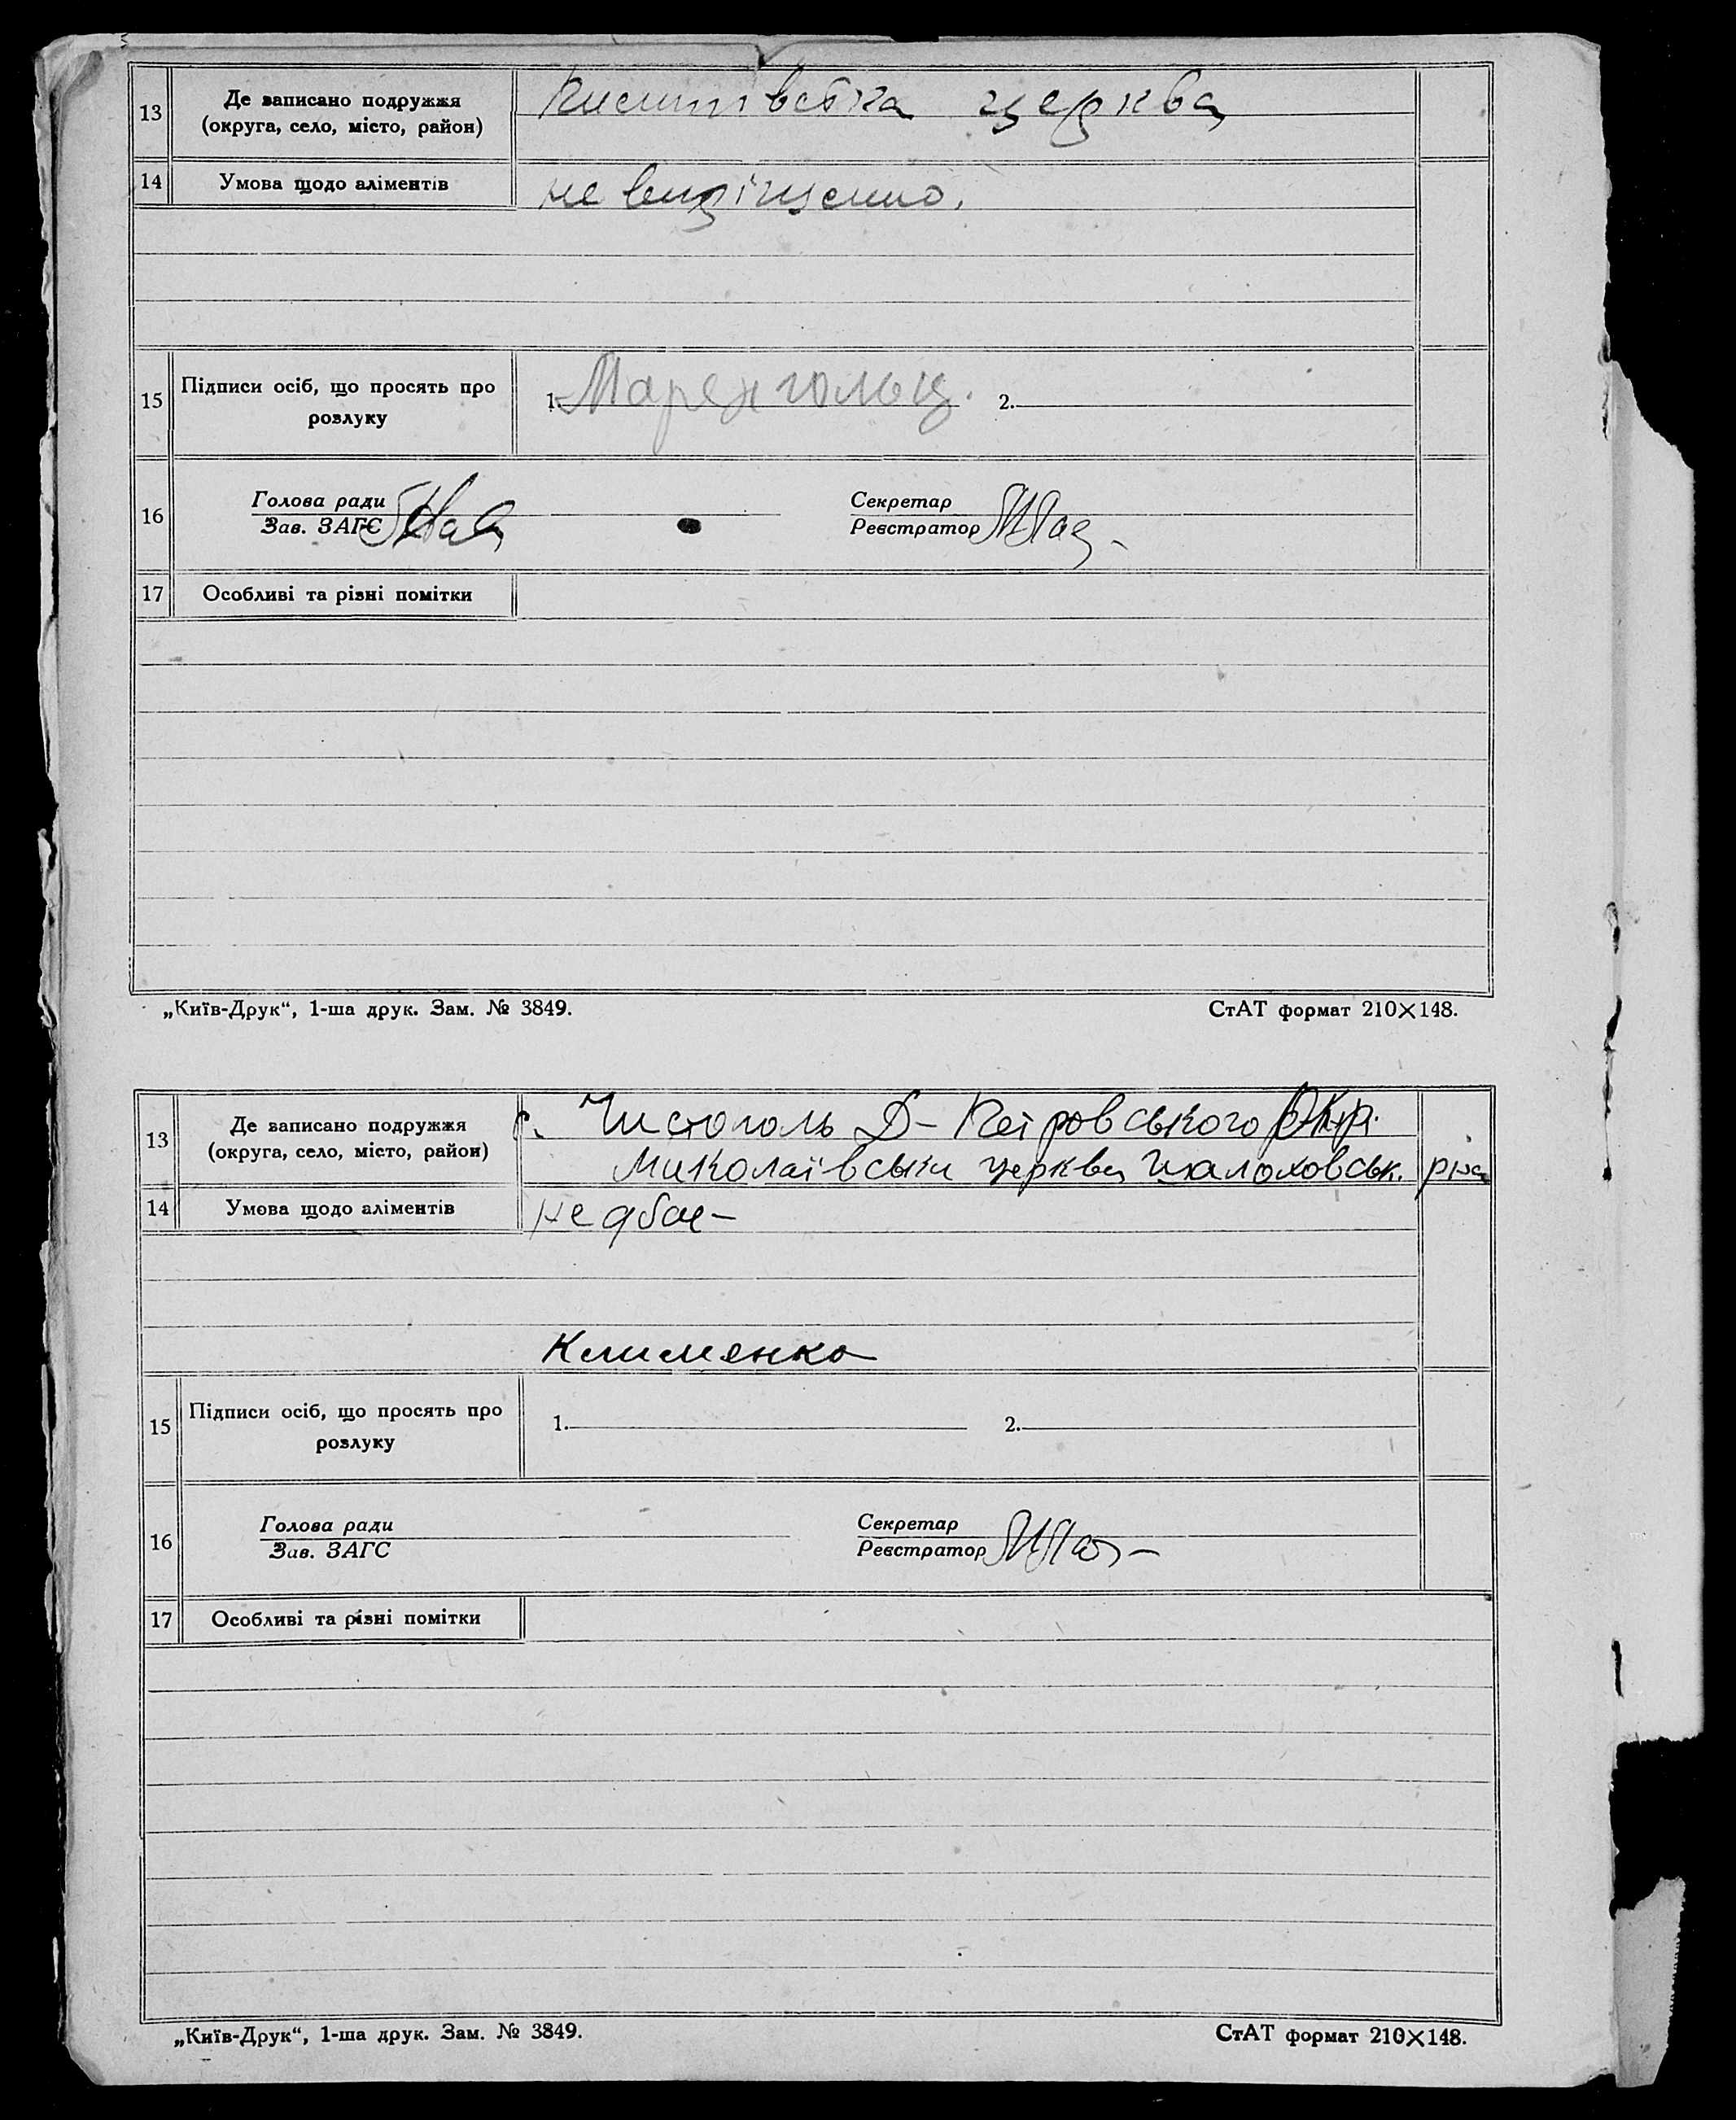 13
Де записано подружжя
(округа, село, місто, район)
церква
14
Умова щодо аліментів
не вирішено.
15
Підписи осіб, що просять про
розлуку
1. Маренгольц. 2.
16
Голова ради
Зав. ЗАГС
Секретар
Реєстратор
17
Особливі та різні помітки
„Київ-Друк“, 1-ша друк. Зам. № 3849.
СтАТ формат 210×148.
13
Де записано подружжя
(округа, село, місто, район)
с. Чистополь Д-Петровського Окр.
Миколаївська церква
14
Умова щодо аліментів
не дбає
Клименко
15
Підписи осіб, що просять про
розлуку
1. 2.
16
Голова ради
Зав. ЗАГС
Секретар
Реєстратор
17
Особливі та різні помітки
„Київ-Друк“, 1-ша друк. Зам. № 3849.
СтАТ формат 210×148.